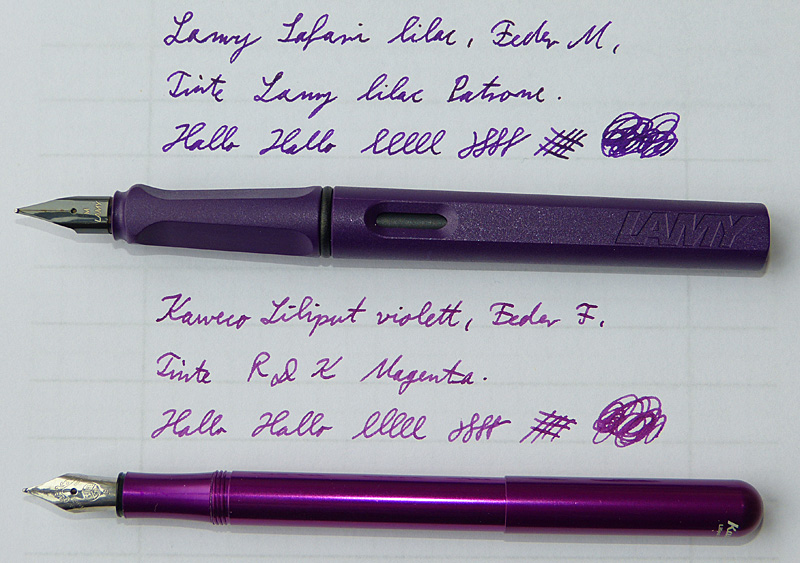 Lamy Safari lilac, Feder M,
Tinte Lamy lilac Patrone.
Hallo Hallo lllll
M
LAMY
LAMY
Kaweco Liliput violett, Feder F.
Tinte R & K Magenta.
Hallo Hallo lllll